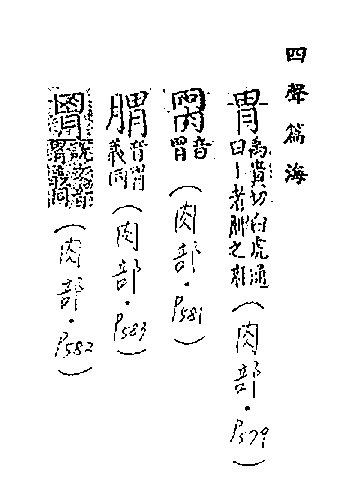 四聲篇海
胃禹貴切白虎通曰丨者脾之府(肉部·P579)
音胃(肉部·P581)
䐿音胃義同(肉部·P583)
說文音胃義同(肉部·P582)